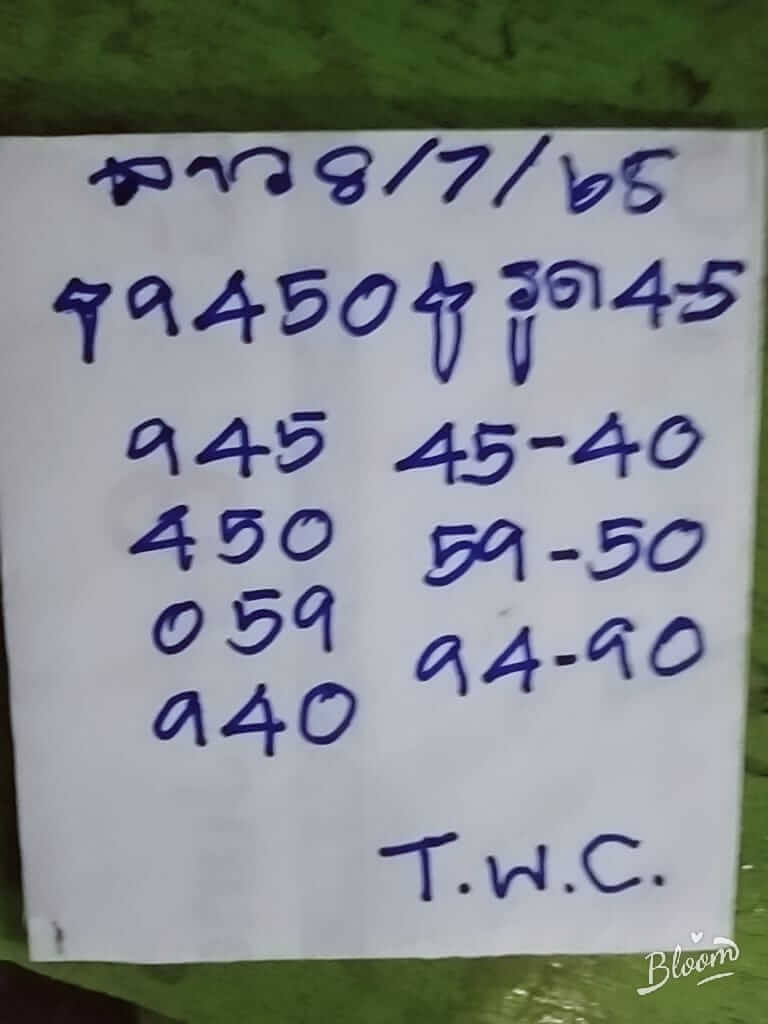 ลาว 8/7/65
9450 รูด 4-5
945 45-40
450 59-50
059 94-90
940
T.W.C.
Bloom